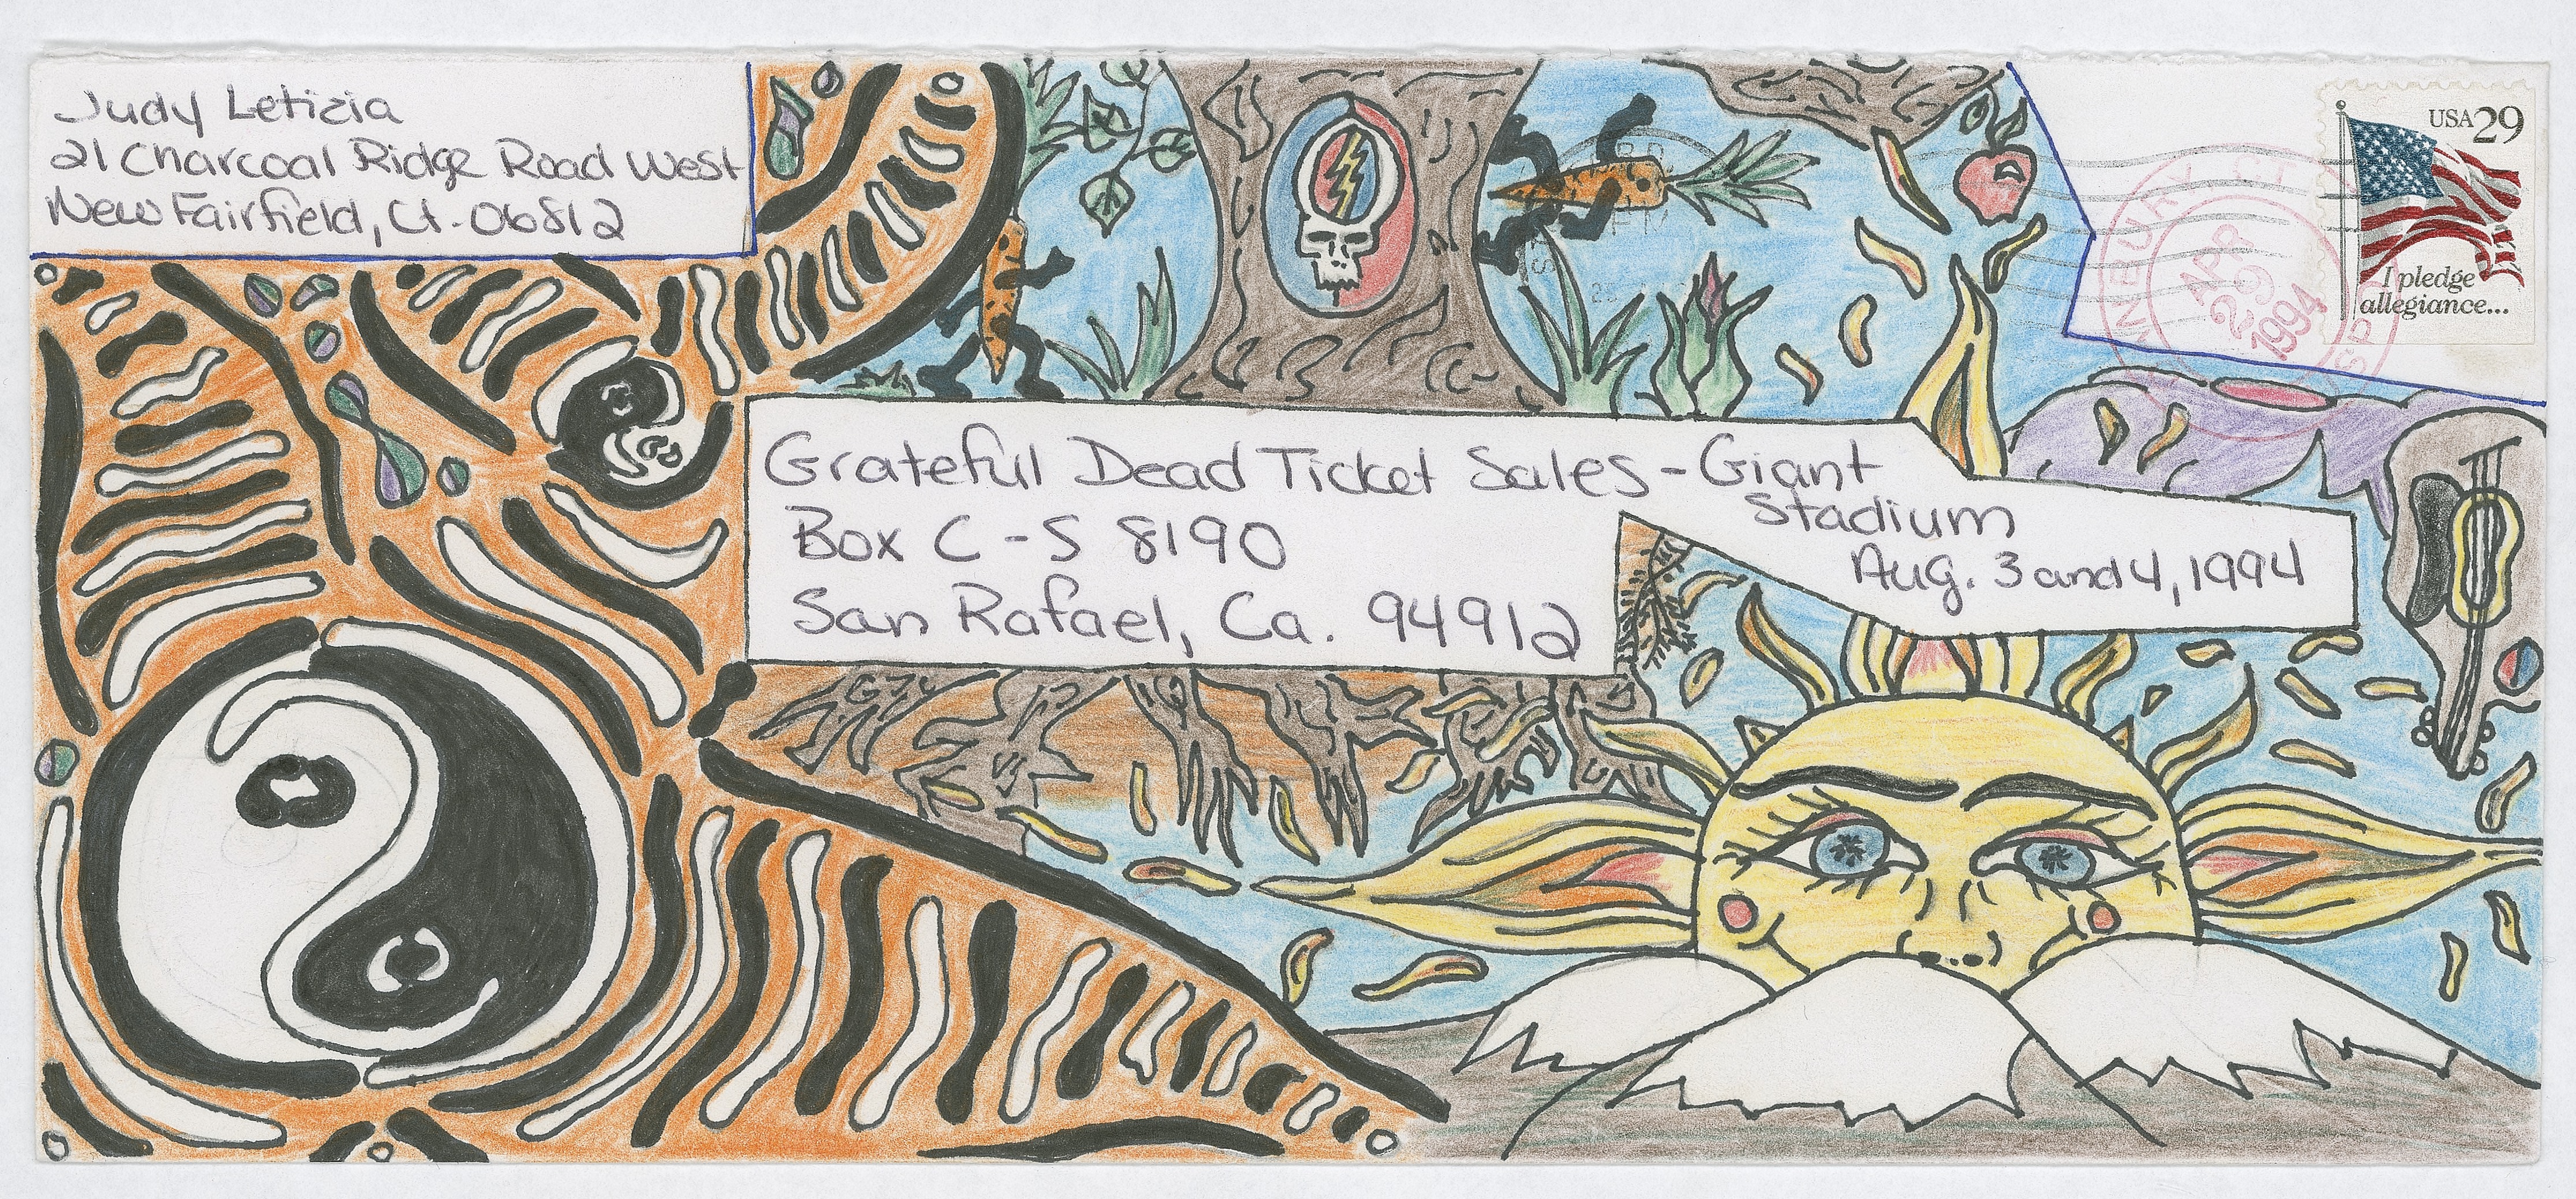 Judy Letizia
21 Charcoal Ridge Road West
New Fairfield, Ct. 06812
USA 29
I pledge
allegiance...
APR
29
1994
Grateful Dead Ticket Sales - Giant
Stadium
Aug. 3 and 4, 1994
Box C-S 8190
San Rafael, Ca. 94912